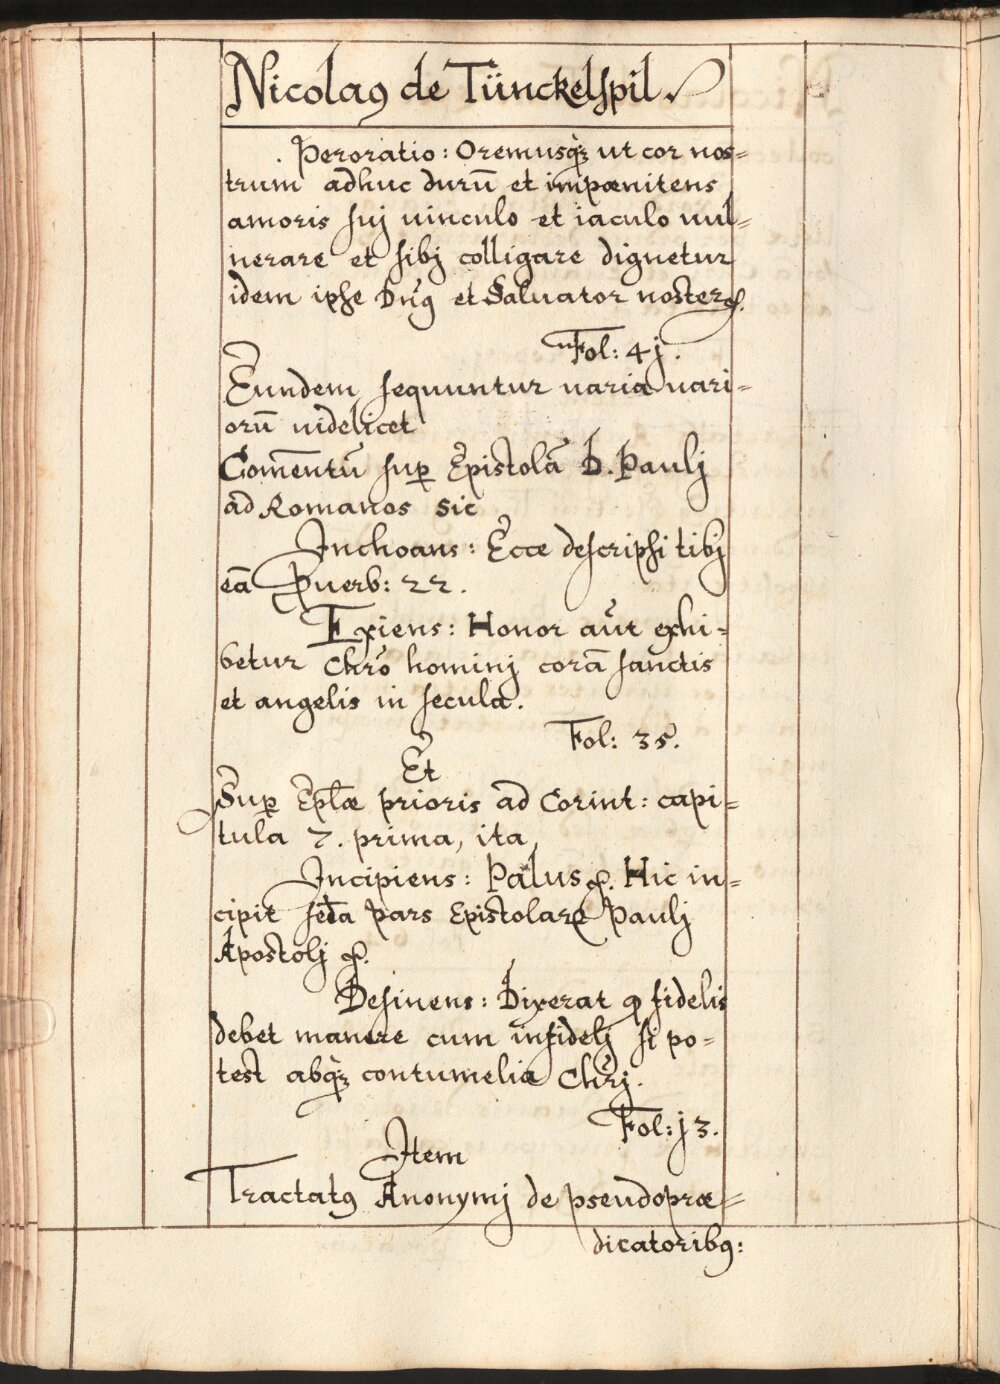 Nicolaꝯ de Tünckelspil.
Peroratio: Oremusq̃ ut cor nos=
trum adhuc durũ et impœnitens
amoris suj uinculo et iaculo uul=
nerare et sibj colligare dignetur
idem ipse Dñꝯ et Saluator noster &.
Fol: 4j.
Eundem sequuntur uaria uari=
orũ uidelicet
Com̃entũ sup̱ Epistolã D. Paulj
ad Romanos sic
Inchoans: Ecce descripsi tibj
eã Puerb: 22.
Exiens: Honor aũt exhi=
betur Chr̃o hominj corã sanctis
et angelis in secula.
Fol: 35.
Et
Sup̱ Ep̃læ prioris ad Corint: capi=
tula 7. prima, ita
Incipiens: Paulus &. Hic in=
cipit sec̃da pars Epistolarꝝ Paulj
Apostolj &.
Desinens: Dixerat ꝙ fidelis
debet manere cum infidelj si po=
test absq̃ contumelia Chr̃j.
Fol: j3.
Item
Tractatꝯ Anonymj de pseudopræ=
dicatoribꝯ: